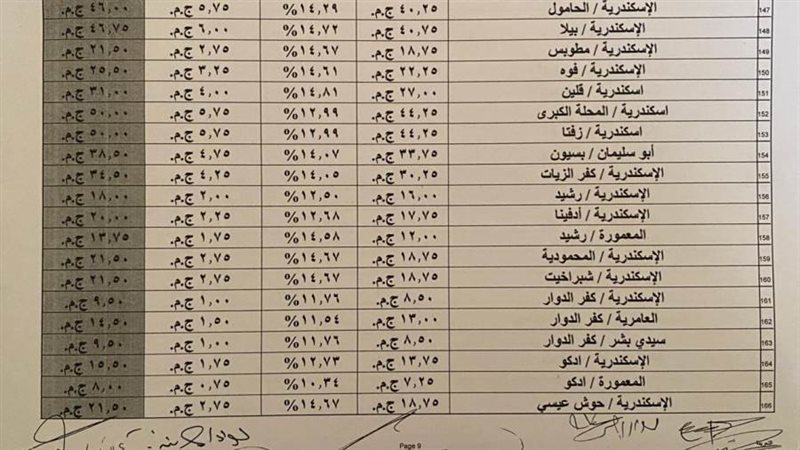 147 الإسكندرية / الحامول ٤٠,٢٥ ج.م. ١٤,٢٩% ٥,٧٥ ج.م. ٤٦,٠٠ ج.م.
148 الإسكندرية / بيلا ٤٠,٧٥ ج.م. ١٤,٧٢% ٦,٠٠ ج.م. ٤٦,٧٥ ج.م.
149 الإسكندرية / مطوبس ١٨,٧٥ ج.م. ١٤,٦٧% ٢,٧٥ ج.م. ٢١,٥٠ ج.م.
150 الإسكندرية / فوه ٢٢,٢٥ ج.م. ١٤,٦١% ٣,٢٥ ج.م. ٢٥,٥٠ ج.م.
151 اسكندرية / قلين ٢٧,٠٠ ج.م. ١٤,٨١% ٤,٠٠ ج.م. ٣١,٠٠ ج.م.
152 اسكندرية / المحلة الكبرى ٤٤,٢٥ ج.م. ١٢,٩٩% ٥,٧٥ ج.م. ٥٠,٠٠ ج.م.
153 اسكندرية / زفتا ٤٤,٢٥ ج.م. ١٢,٩٩% ٥,٧٥ ج.م. ٥٠,٠٠ ج.م.
154 أبو سليمان / بسيون ٣٣,٧٥ ج.م. ١٤,٠٧% ٤,٧٥ ج.م. ٣٨,٥٠ ج.م.
155 الإسكندرية / كفر الزيات ٣٠,٢٥ ج.م. ١٤,٠٥% ٤,٢٥ ج.م. ٣٤,٥٠ ج.م.
156 الإسكندرية / رشيد ١٦,٠٠ ج.م. ١٢,٥٠% ٢,٠٠ ج.م. ١٨,٠٠ ج.م.
157 الإسكندرية / أدفينا ١٧,٧٥ ج.م. ١٢,٦٨% ٢,٢٥ ج.م. ٢٠,٠٠ ج.م.
158 المعمورة / رشيد ١٢,٠٠ ج.م. ١٤,٥٨% ١,٧٥ ج.م. ١٣,٧٥ ج.م.
159 الإسكندرية / المحمودية ١٨,٧٥ ج.م. ١٤,٦٧% ٢,٧٥ ج.م. ٢١,٥٠ ج.م.
160 الإسكندرية / شبراخيت ١٨,٧٥ ج.م. ١٤,٦٧% ٢,٧٥ ج.م. ٢١,٥٠ ج.م.
161 الإسكندرية / كفر الدوار ٨,٥٠ ج.م. ١١,٧٦% ١,٠٠ ج.م. ٩,٥٠ ج.م.
162 العامرية / كفر الدوار ١٣,٠٠ ج.م. ١١,٥٤% ١,٥٠ ج.م. ١٤,٥٠ ج.م.
163 سيدي بشر / كفر الدوار ٨,٥٠ ج.م. ١١,٧٦% ١,٠٠ ج.م. ٩,٥٠ ج.م.
164 الإسكندرية / ادكو ١٣,٧٥ ج.م. ١٢,٧٣% ١,٧٥ ج.م. ١٥,٥٠ ج.م.
165 المعمورة / ادكو ٧,٢٥ ج.م. ١٠,٣٤% ٠,٧٥ ج.م. ٨,٠٠ ج.م.
166 الإسكندرية / حوش عيسي ١٨,٧٥ ج.م. ١٤,٦٧% ٢,٧٥ ج.م. ٢١,٥٠ ج.م.
Page 9